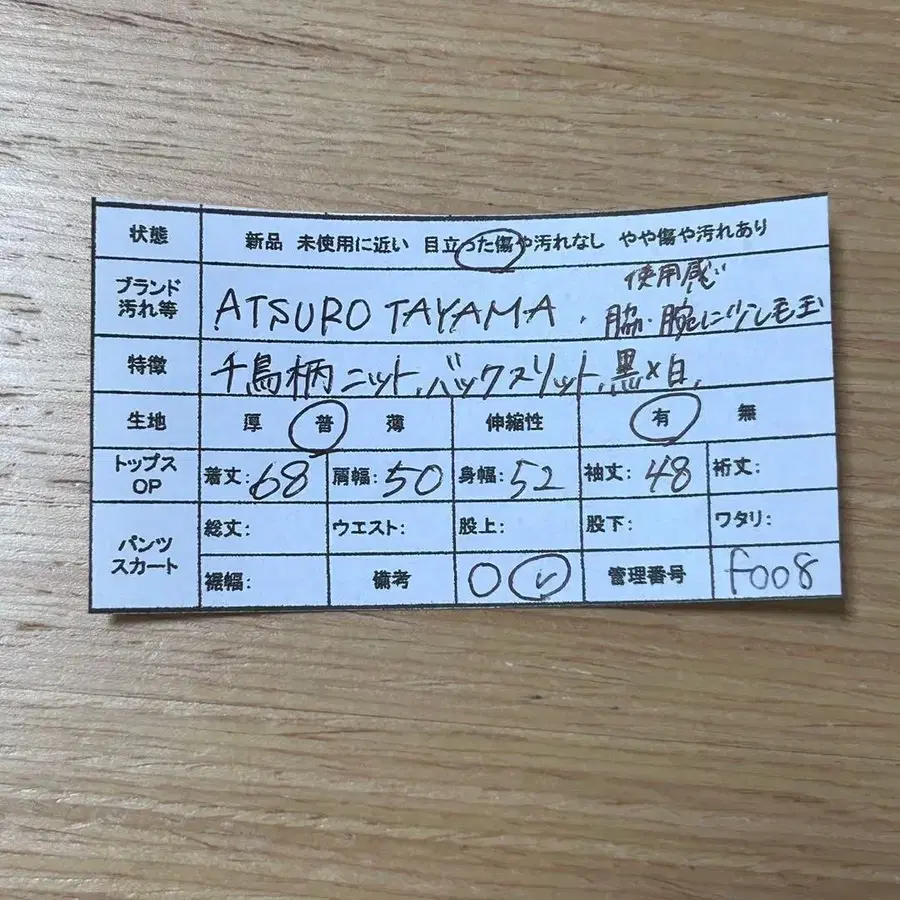 状態 新品 未使用に近い 目立った傷や汚れなし やや傷や汚れあり
ブランド 汚れ等 ATSURO TAYAMA . 使用感 脇・腕に少し毛玉
特徴 千鳥柄ニット、バックスリット、黒×白、
生地 厚 普 薄 伸縮性 有 無
トップス OP 着丈:68 肩幅:50 身幅:52 袖丈:48 裄丈:
パンツ スカート 総丈: ウエスト: 股上: 股下: ワタリ:
裾幅: 備考 管理番号 f008